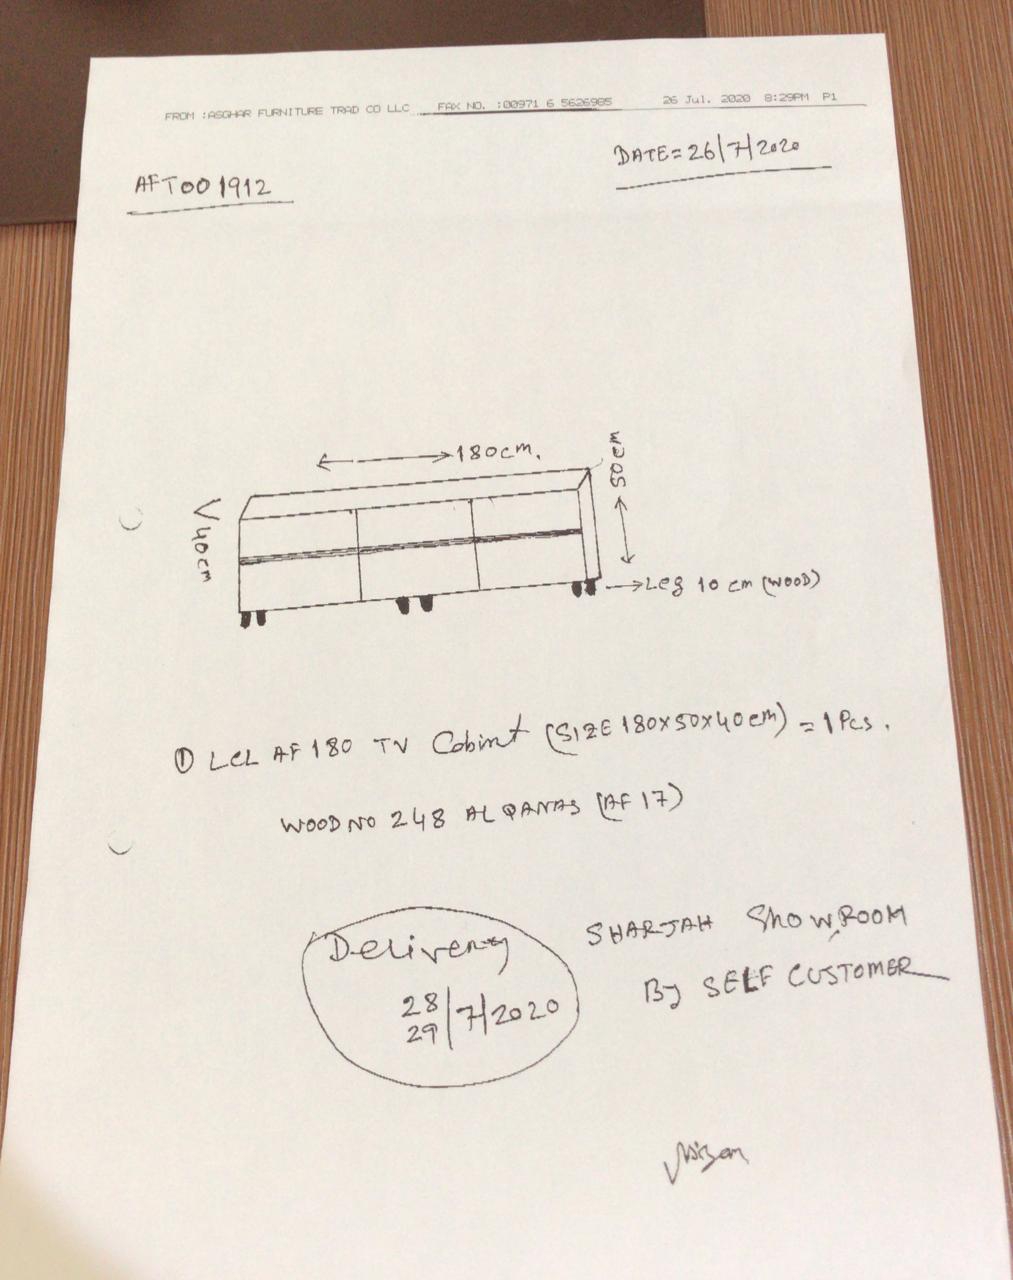 FROM :ASGHAR FURNITURE TRAD CO LLC FAX NO. :00971 6 5626985 26 Jul. 2020 8:29PM P1
DATE=26/7/2020
AFT001912
180cm.
50cm
40cm
Leg 10 cm (WOOD)
① LCL AF 180 TV Cobint (SIZE 180x50x40cm) = 1 Pcs.
WOOD NO 248 AL QANAS (AF 17)
Delivery
28
29/7/2020
SHARJAH SHOWROOM
By SELF CUSTOMER